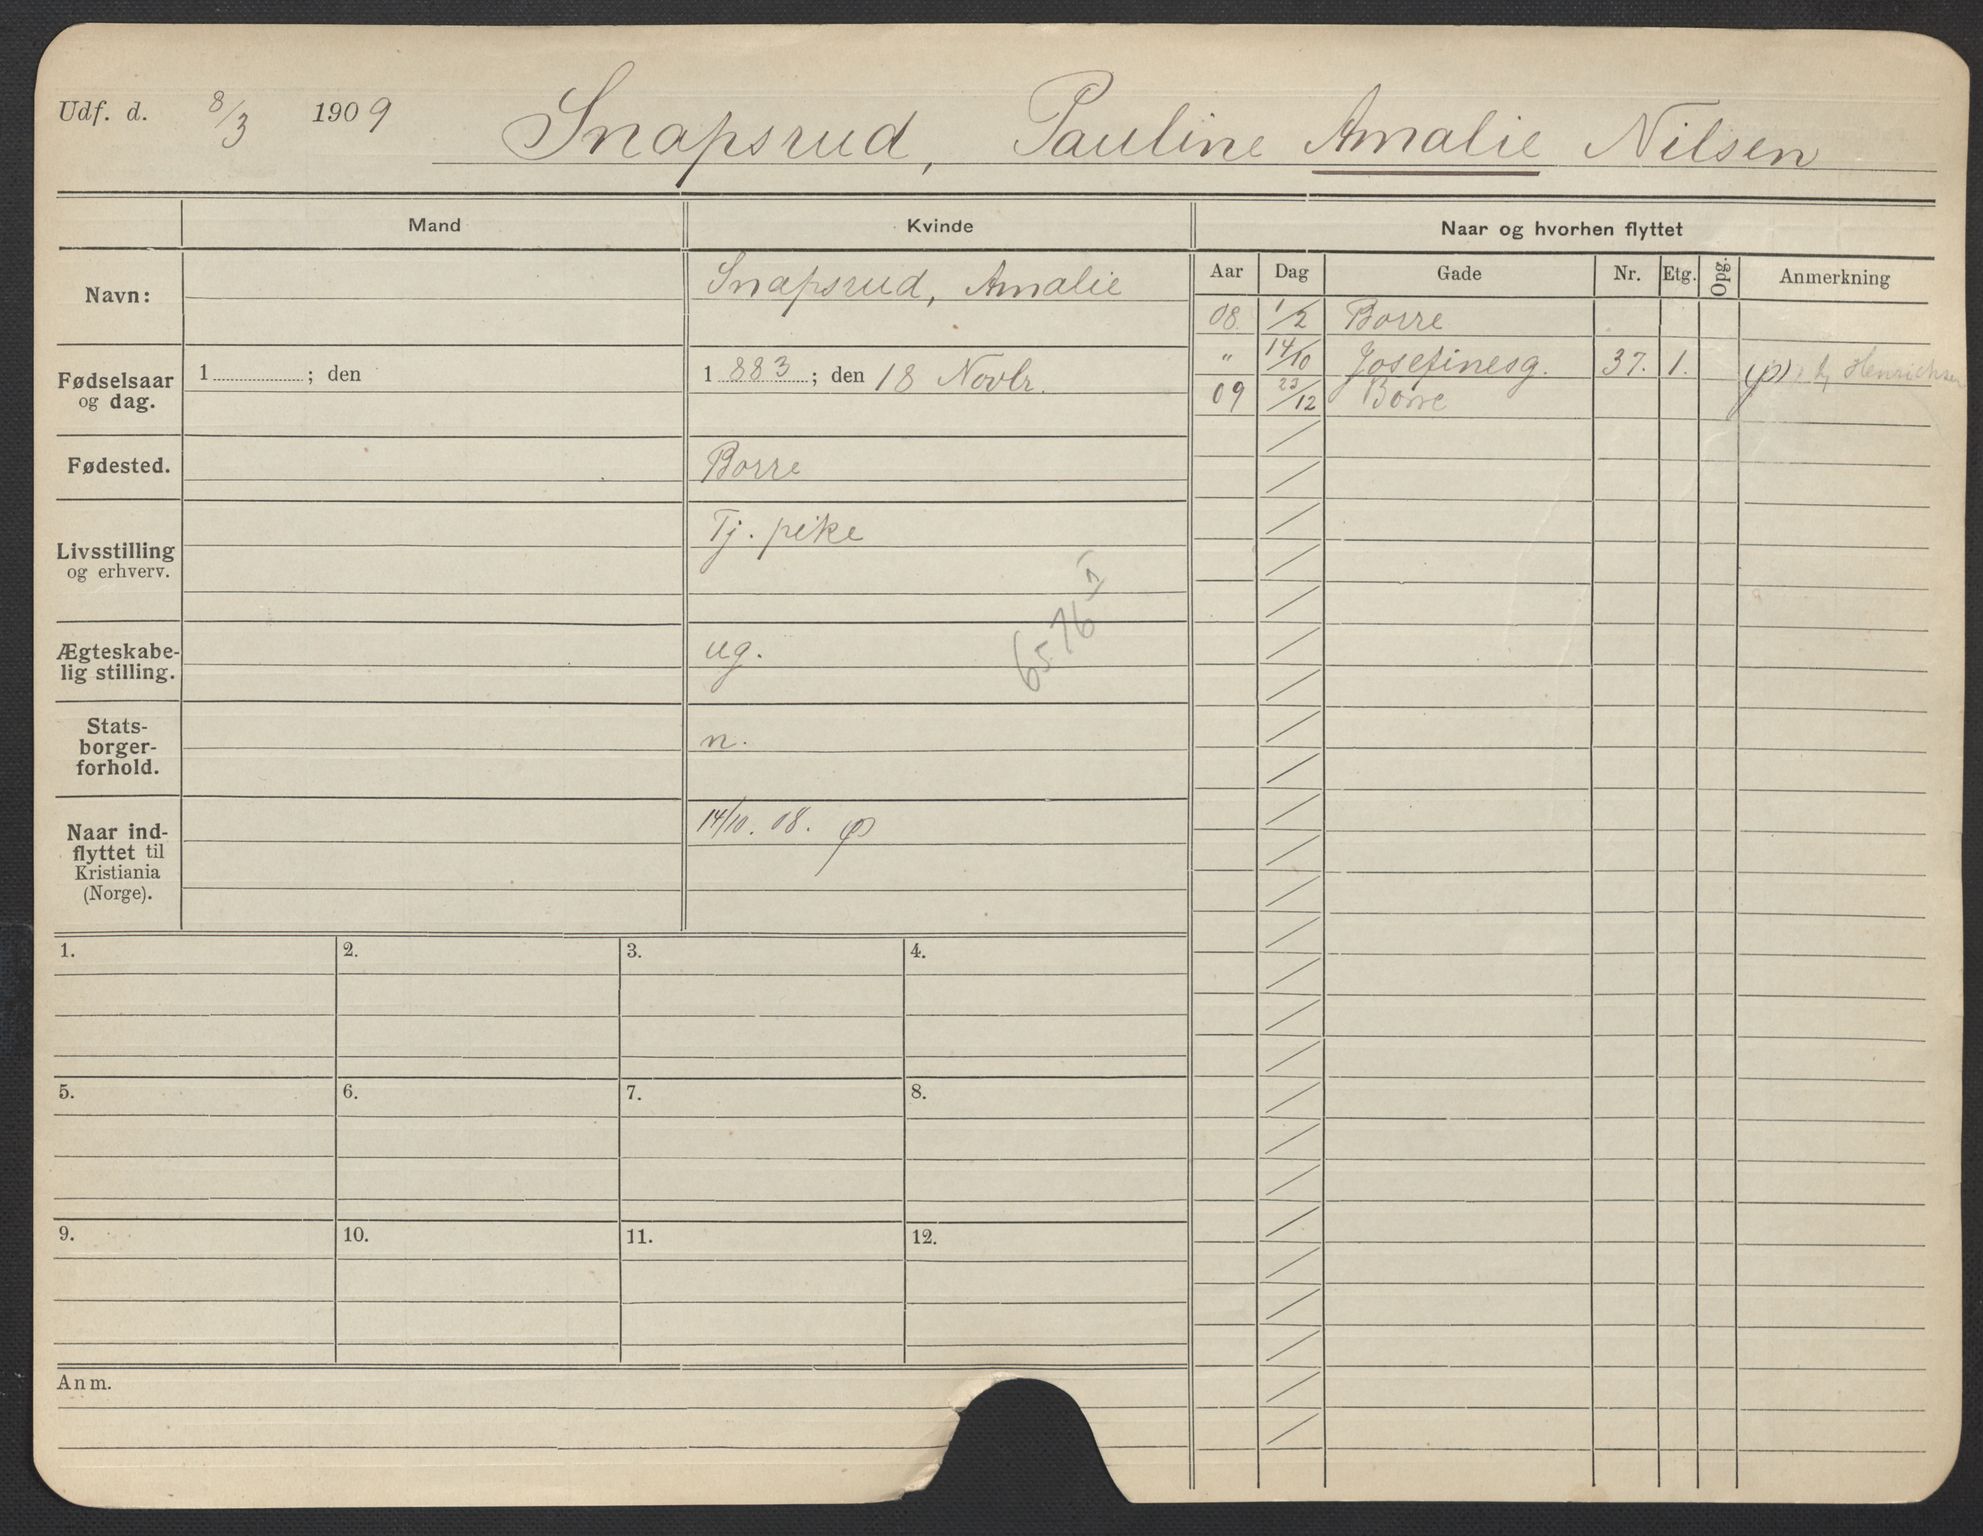 Udf. d. 8/3 1909 Snapsrud, Pauline Amalie Nilsen
Mand Kvinde Naar og hvorhen flyttet
Navn: Snapsrud, Amalie
Aar Dag Gade Nr. Etg. Opg. Anmerkning
08 1/2 Borre
" 14/10 Josefinesg. 37. 1. Henrichsen
09 23/12 Borre
Fødselsaar
og dag.
1 ; den
1 883 ; den 18 Novbr.
Fødested. Borre
Livsstilling
og erhverv.
Tj. pike
Ægteskabe-
lig stilling.
ug.
6576 I
Stats-
borger-
forhold.
n.
Naar ind-
flyttet til
Kristiania
(Norge).
14/10. 08.
1. 2. 3. 4.
5. 6. 7. 8.
9. 10. 11. 12.
Anm.